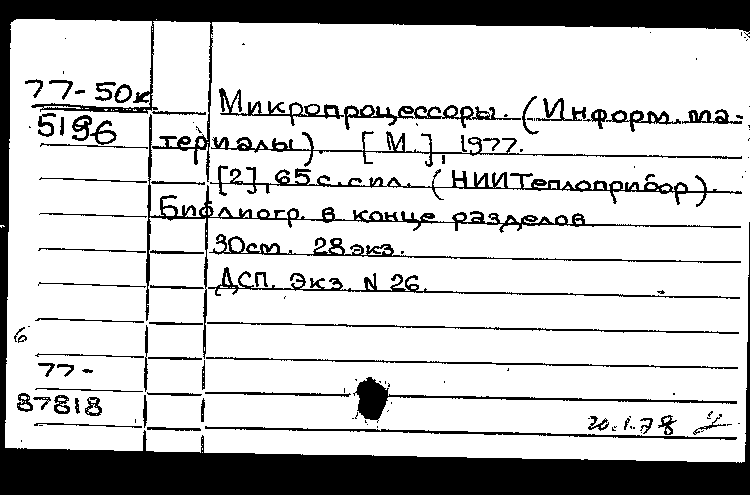 77-50к
5196
Микропроцессоры. (Информ. ма-
териалы). [М.], 1977.
[2], 65 с. с ил. (НИИТеплоприбор).
Библиогр. в конце разделов
30см. 28 экз.
ДСП. Экз. N 26.
6
77-
87818
20.1.78